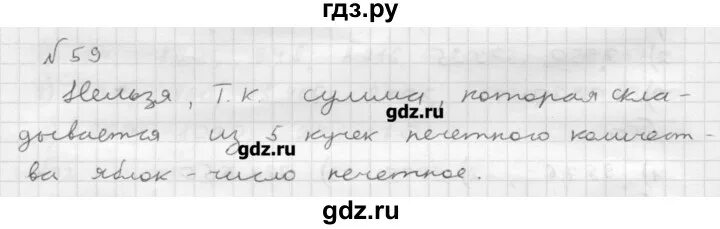 гдз.ру
№59
Нельзя, т.к. сумма, которая скла-
gdz.ru
дывается из 5 кучек нечетного количест-
gdz.ru
ва яблок - число нечетное.
gdz.ru